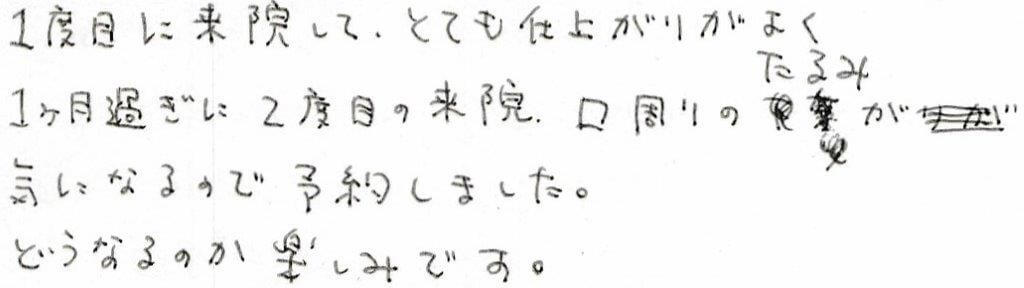 1度目に来院して、とても仕上がりがよく
1ヶ月過ぎに2度目の来院、口周りのたるみが
気になるので予約しました。
どうなるのか楽しみです。